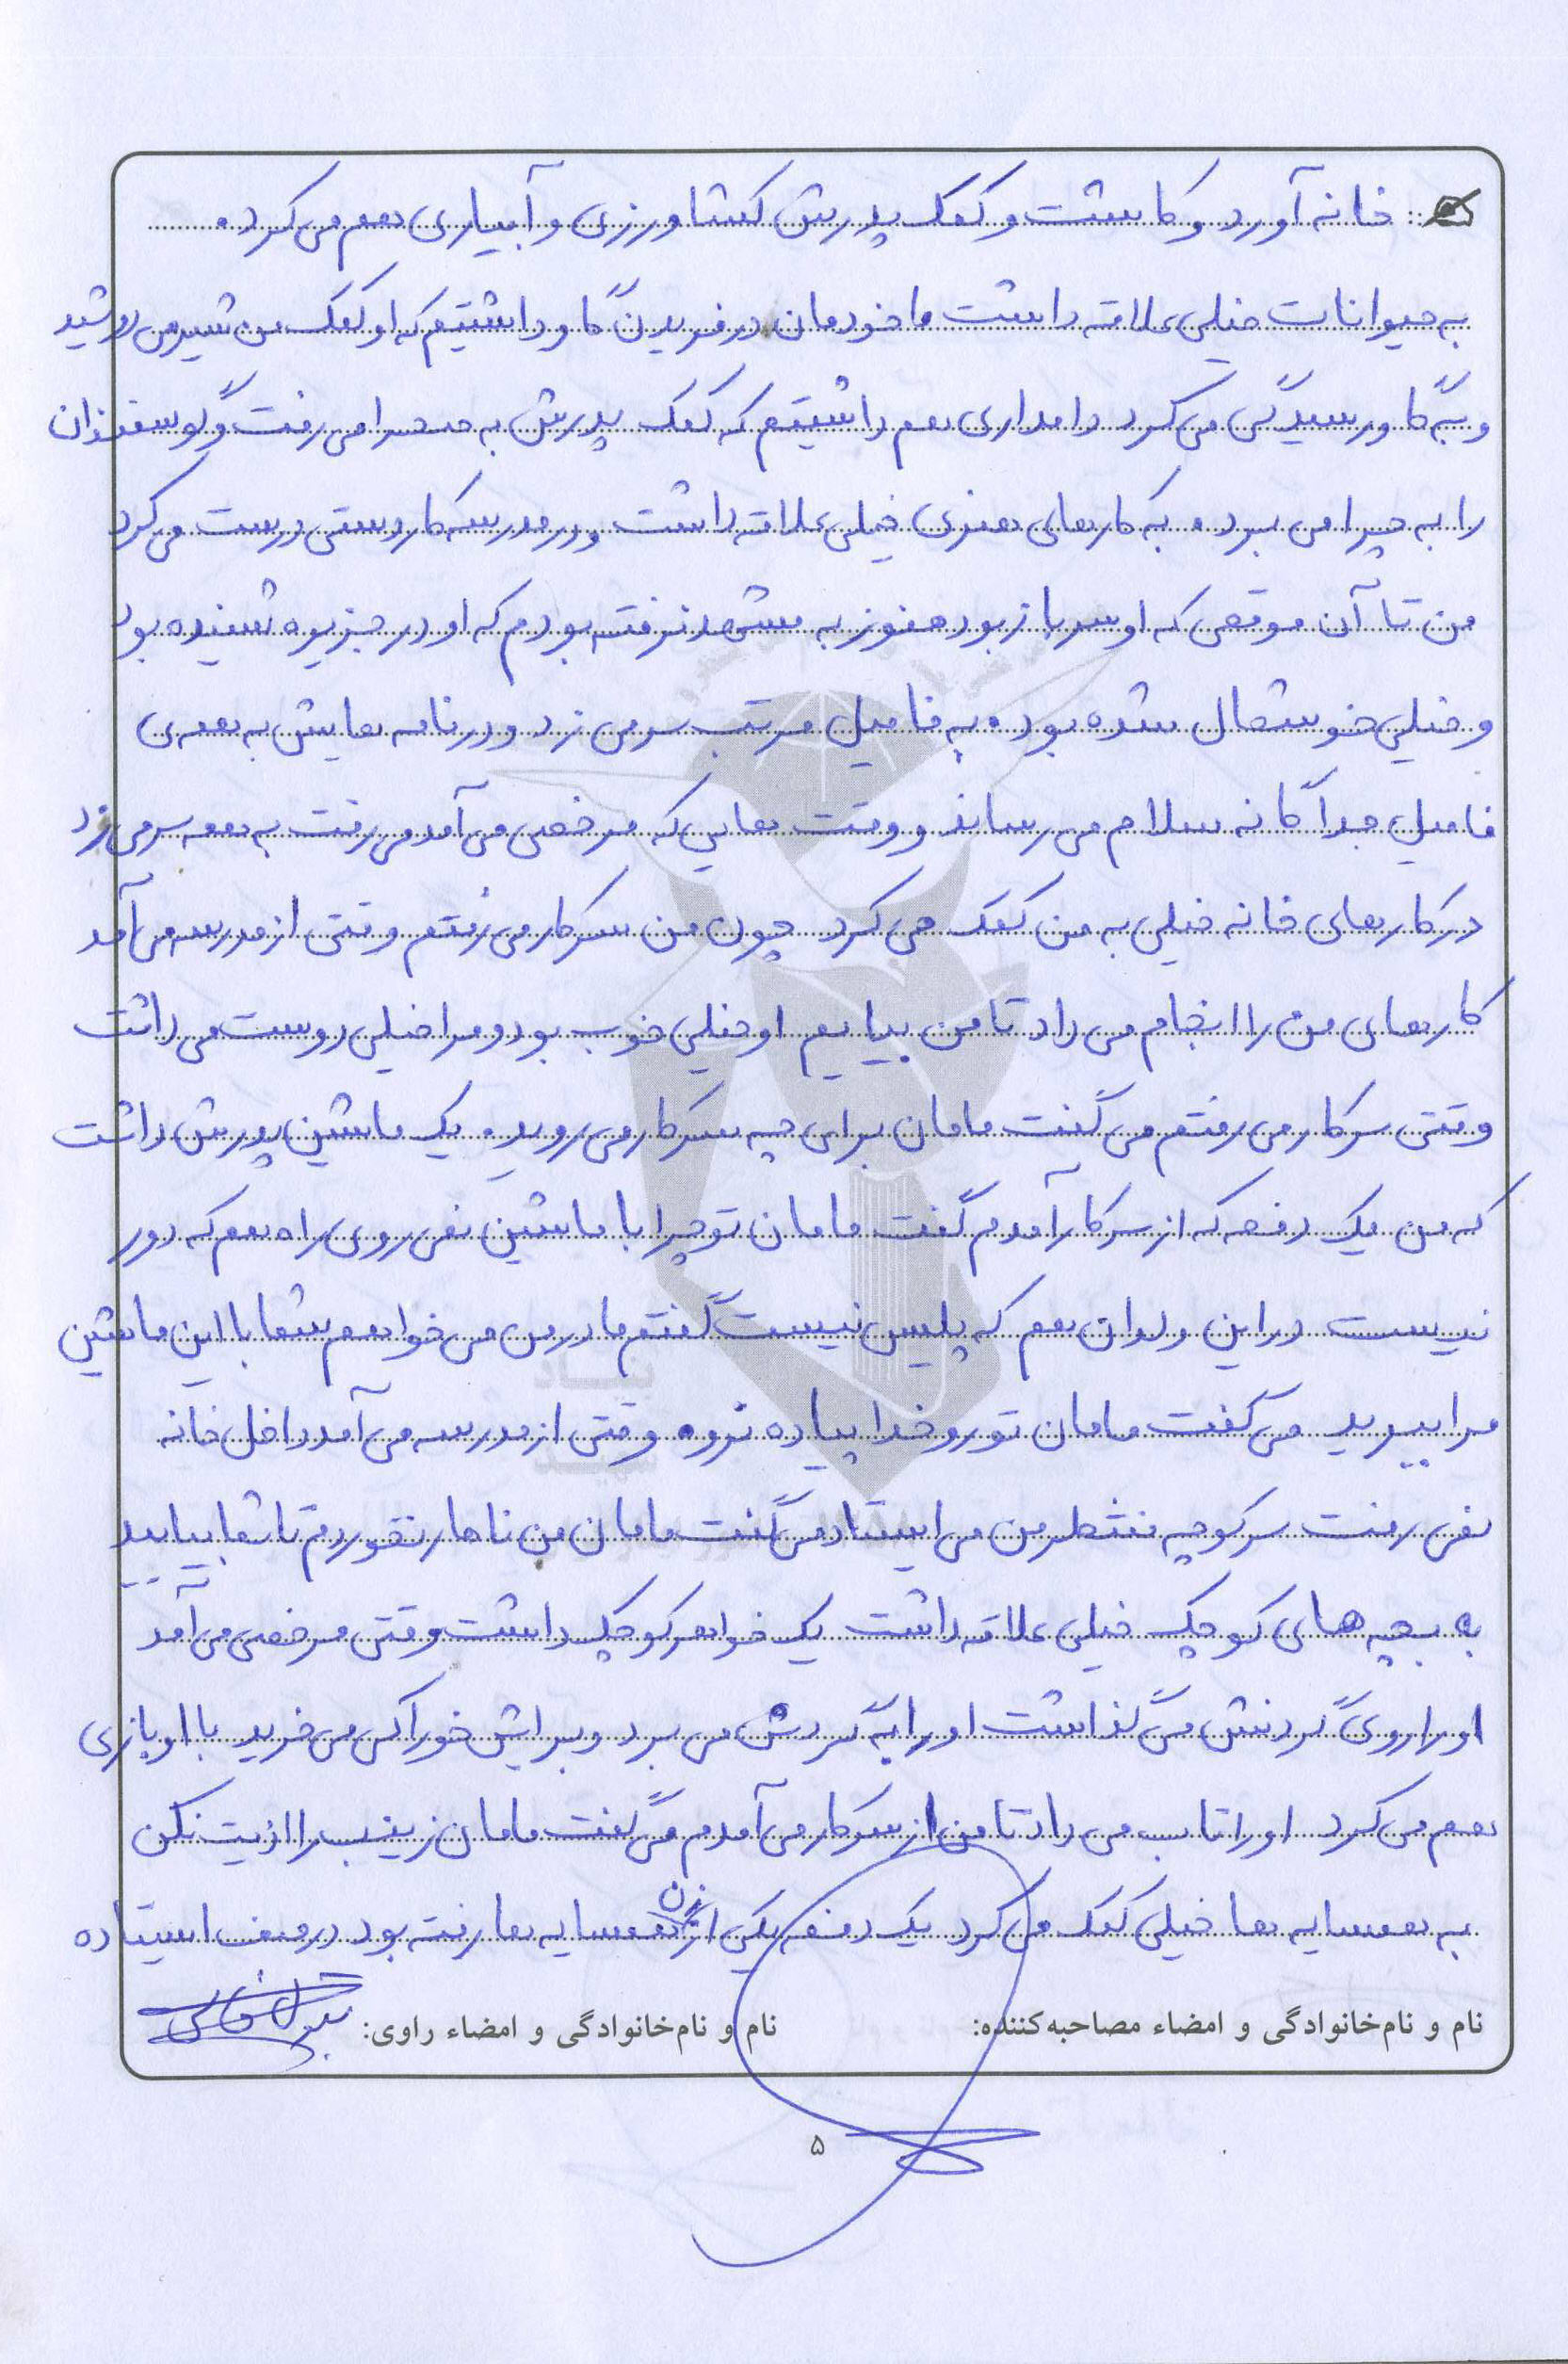 خانه آورد و کاشت و کمک پدرش کشاورزی و آبیاری هم می کرد.
به حیوانات خیلی علاقه داشت ما خودمان در فریدن گاو داشتیم که او کمک من شیر می دوشید
و به گاو رسیدگی می کرد دامداری هم داشتیم که کمک پدرش به صحرا می رفت و گوسفندان
را به چرا می برد. به کارهای هنری خیلی علاقه داشت و در مدرسه کاردستی درست می کرد
من تا آن موقعی که او سرباز بود هنوز به مشهد نرفته بودم که او در جزیره شنیده بود
و خیلی خوشحال شده بود. به فامیل مرتب سر می زد و در نامه هایش به همه ی
فامیل جداگانه سلام می رساند و وقت هایی که مرخصی می آمد می رفت به همه سر می زد
در کارهای خانه خیلی به من کمک می کرد چون من سر کار می رفتم وقتی از مدرسه می آمد
کارهای من را انجام می داد تا من بیایم او خیلی خوب بود و مرا خیلی دوست می داشت
وقتی سر کار می رفتم می گفت مامان برای چه سر کار می روید. یک ماشین پدرش داشت
که من یک دفعه که از سر کار آمدم گفت مامان تو چرا با ماشین نمی روی راه هم که دور
نیست در این ولدان هم که پلیس نیست گفتم مادر من می خواهم شما با این ماشین
مرا ببرید می گفت مامان تورو خدا پیاده نرو. وقتی از مدرسه می آمد داخل خانه
نمی رفت سر کوچه منتظر من می ایستاد می گفت مامان من ناهار نخوردم تا شما بیایید
به بچه های کوچک خیلی علاقه داشت یک خواهر کوچک داشت وقتی مرخصی می آمد
او را روی گردنش می گذاشت او را به گردش می برد و برایش خوراکی می خرید با او بازی
هم می کرد او را تاب می داد تا من از سر کار می آمدم می گفت مامان زینب را اذیت نکن
به همسایه ها خیلی کمک می کرد یک دفعه یکی از زن همسایه ها رفته بود در صف ایستاده
نام و نام‌خانوادگی و امضاء مصاحبه‌کننده: نام و نام‌خانوادگی و امضاء راوی:
۵